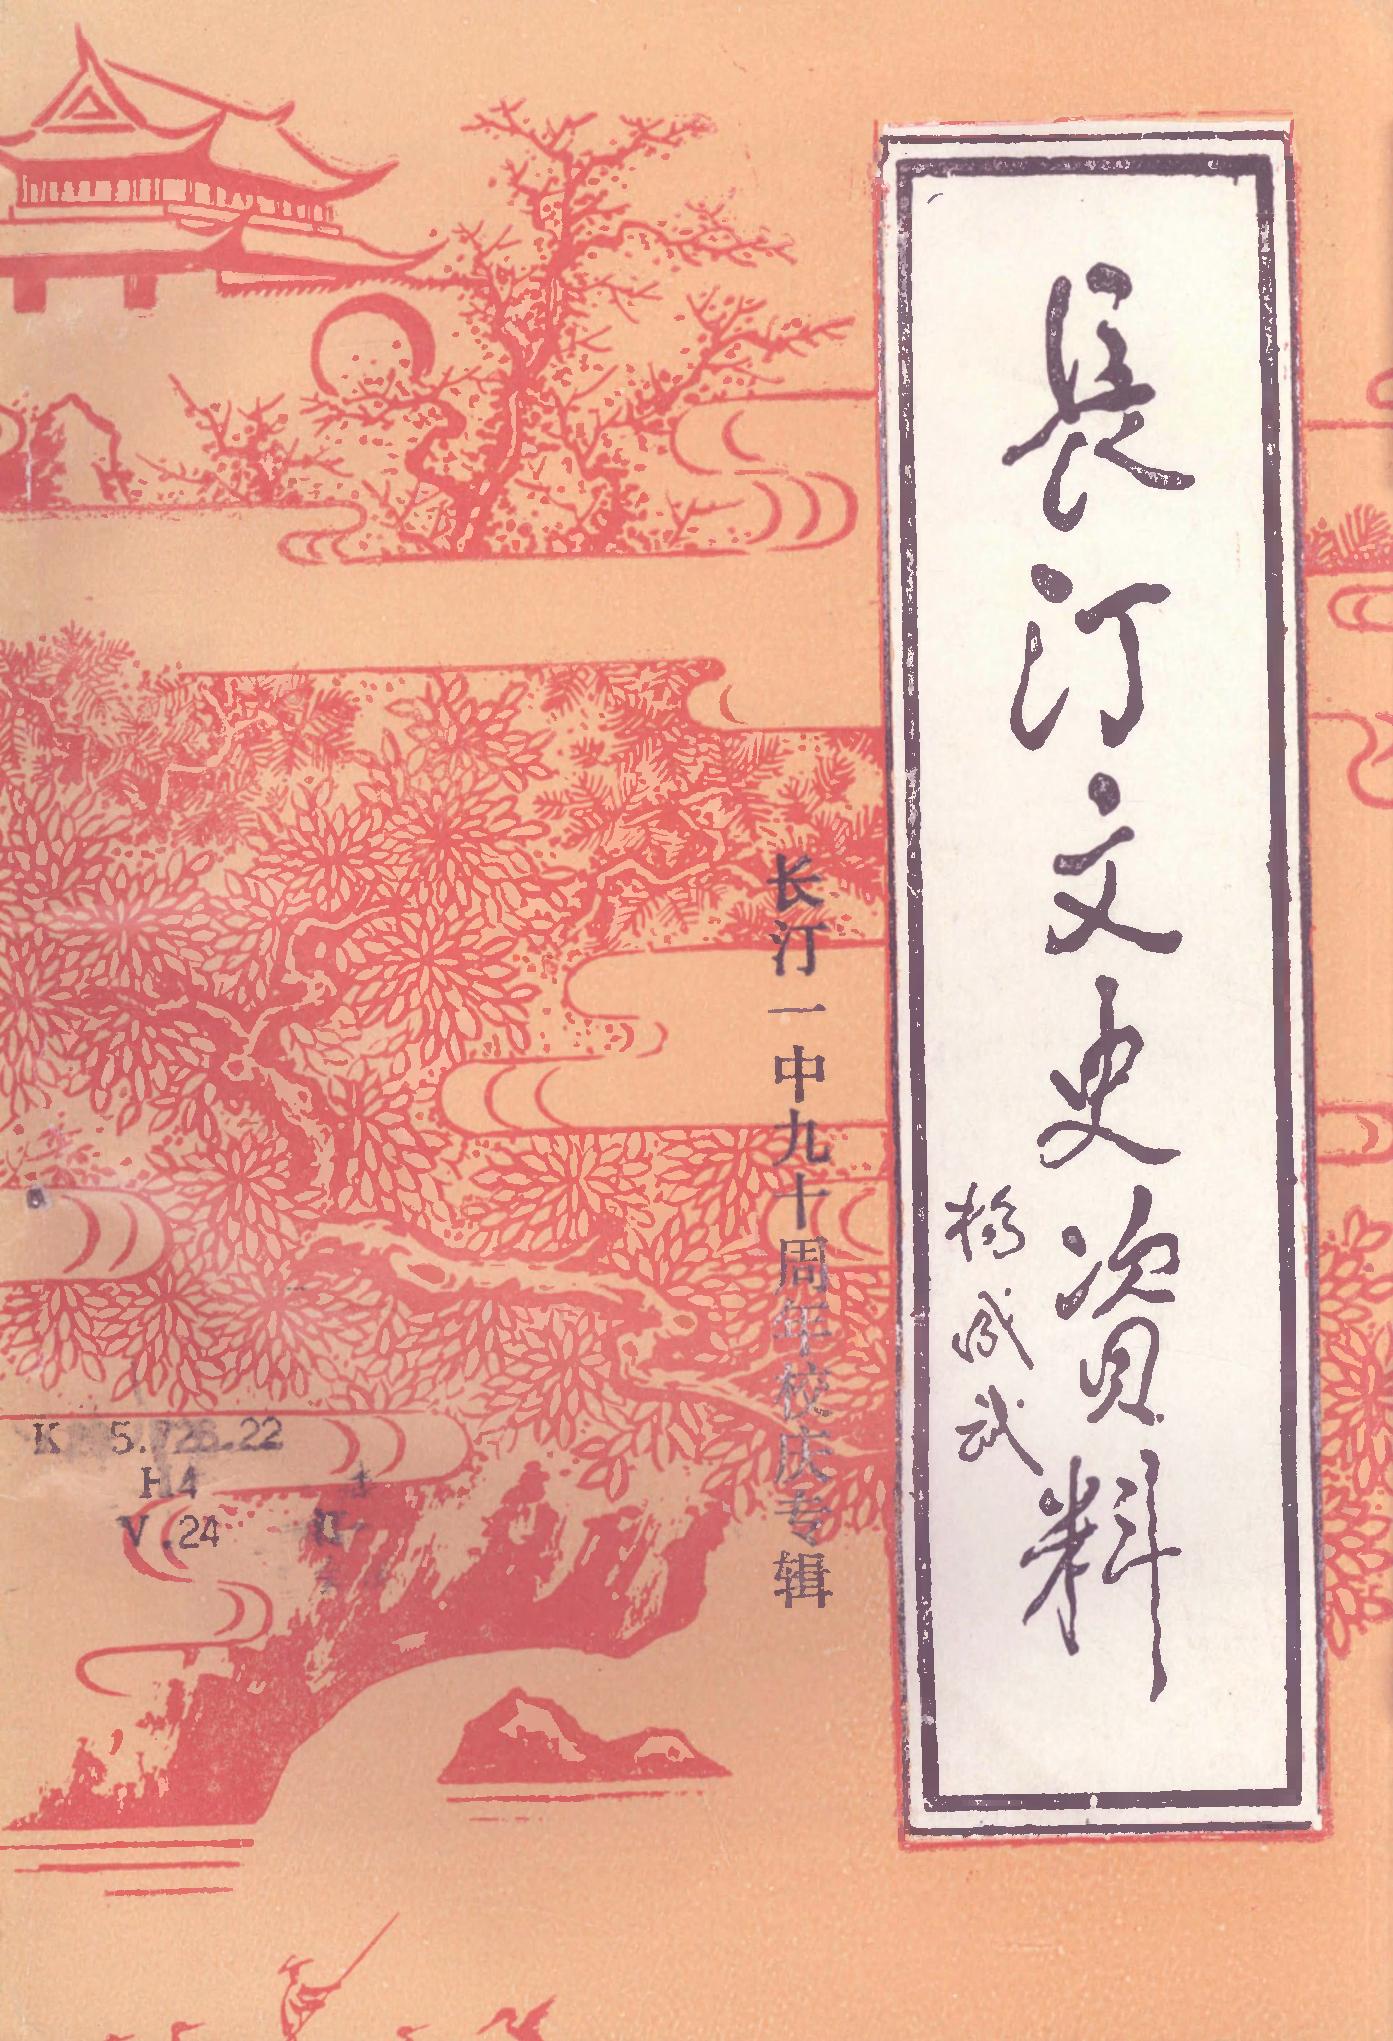 長汀文史資料
楊成武
长汀一中九十周年校庆专辑
K 5.728.22
H4
V.24